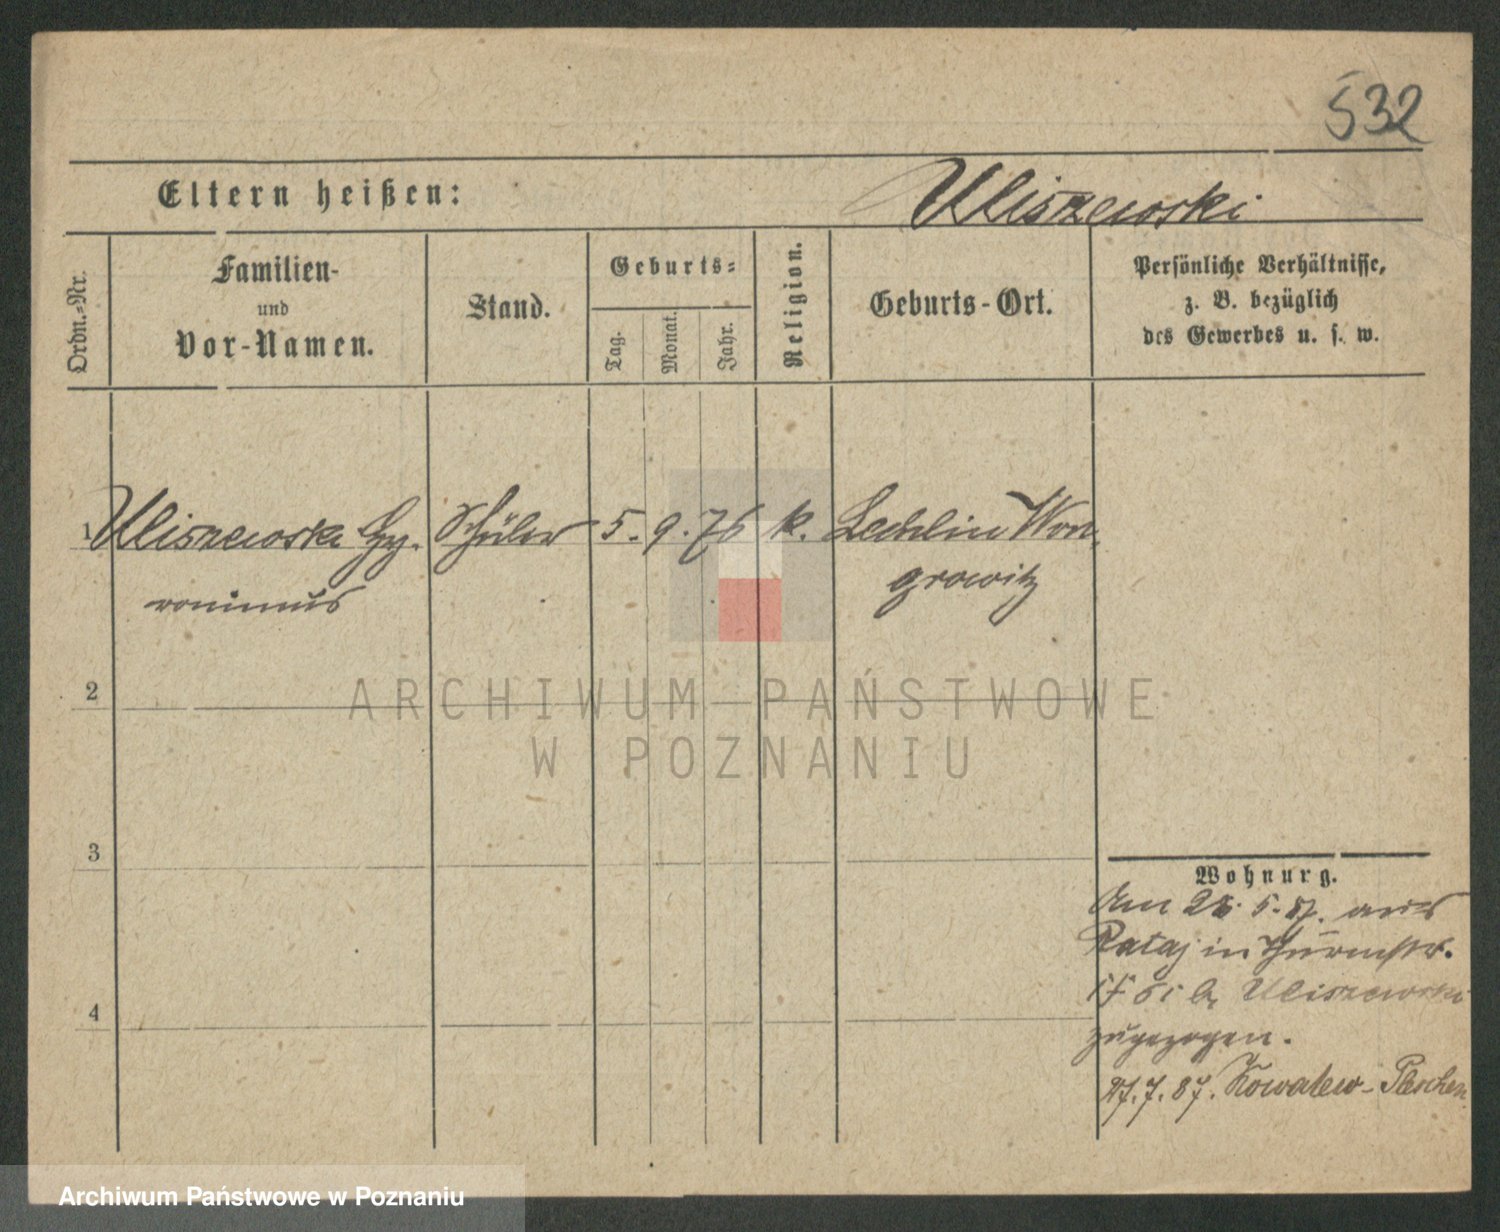 532
Eltern heißen:
Uliszewski
Ordn.-Nr.
Familien-
und
Vor-Namen.
Stand.
Geburts-
Tag.
Monat.
Jahr.
Religion.
Geburts-Ort.
Persönliche Verhältnisse,
z. B. bezüglich
des Gewerbes u. s. w.
1 Uliszewski Hy- Schüler 5. 9. 76 k. Lechlin Won-
ronimus
growitz
2
3
4
Wohnung.
Am 5. 87. aus
Rataj in Thurmstr.
Uliszewski
zugezogen.
27.7.87. Kowalew-Pleschen
ARCHIWUM PAŃSTWOWE
W POZNANIU
Archiwum Państwowe w Poznaniu